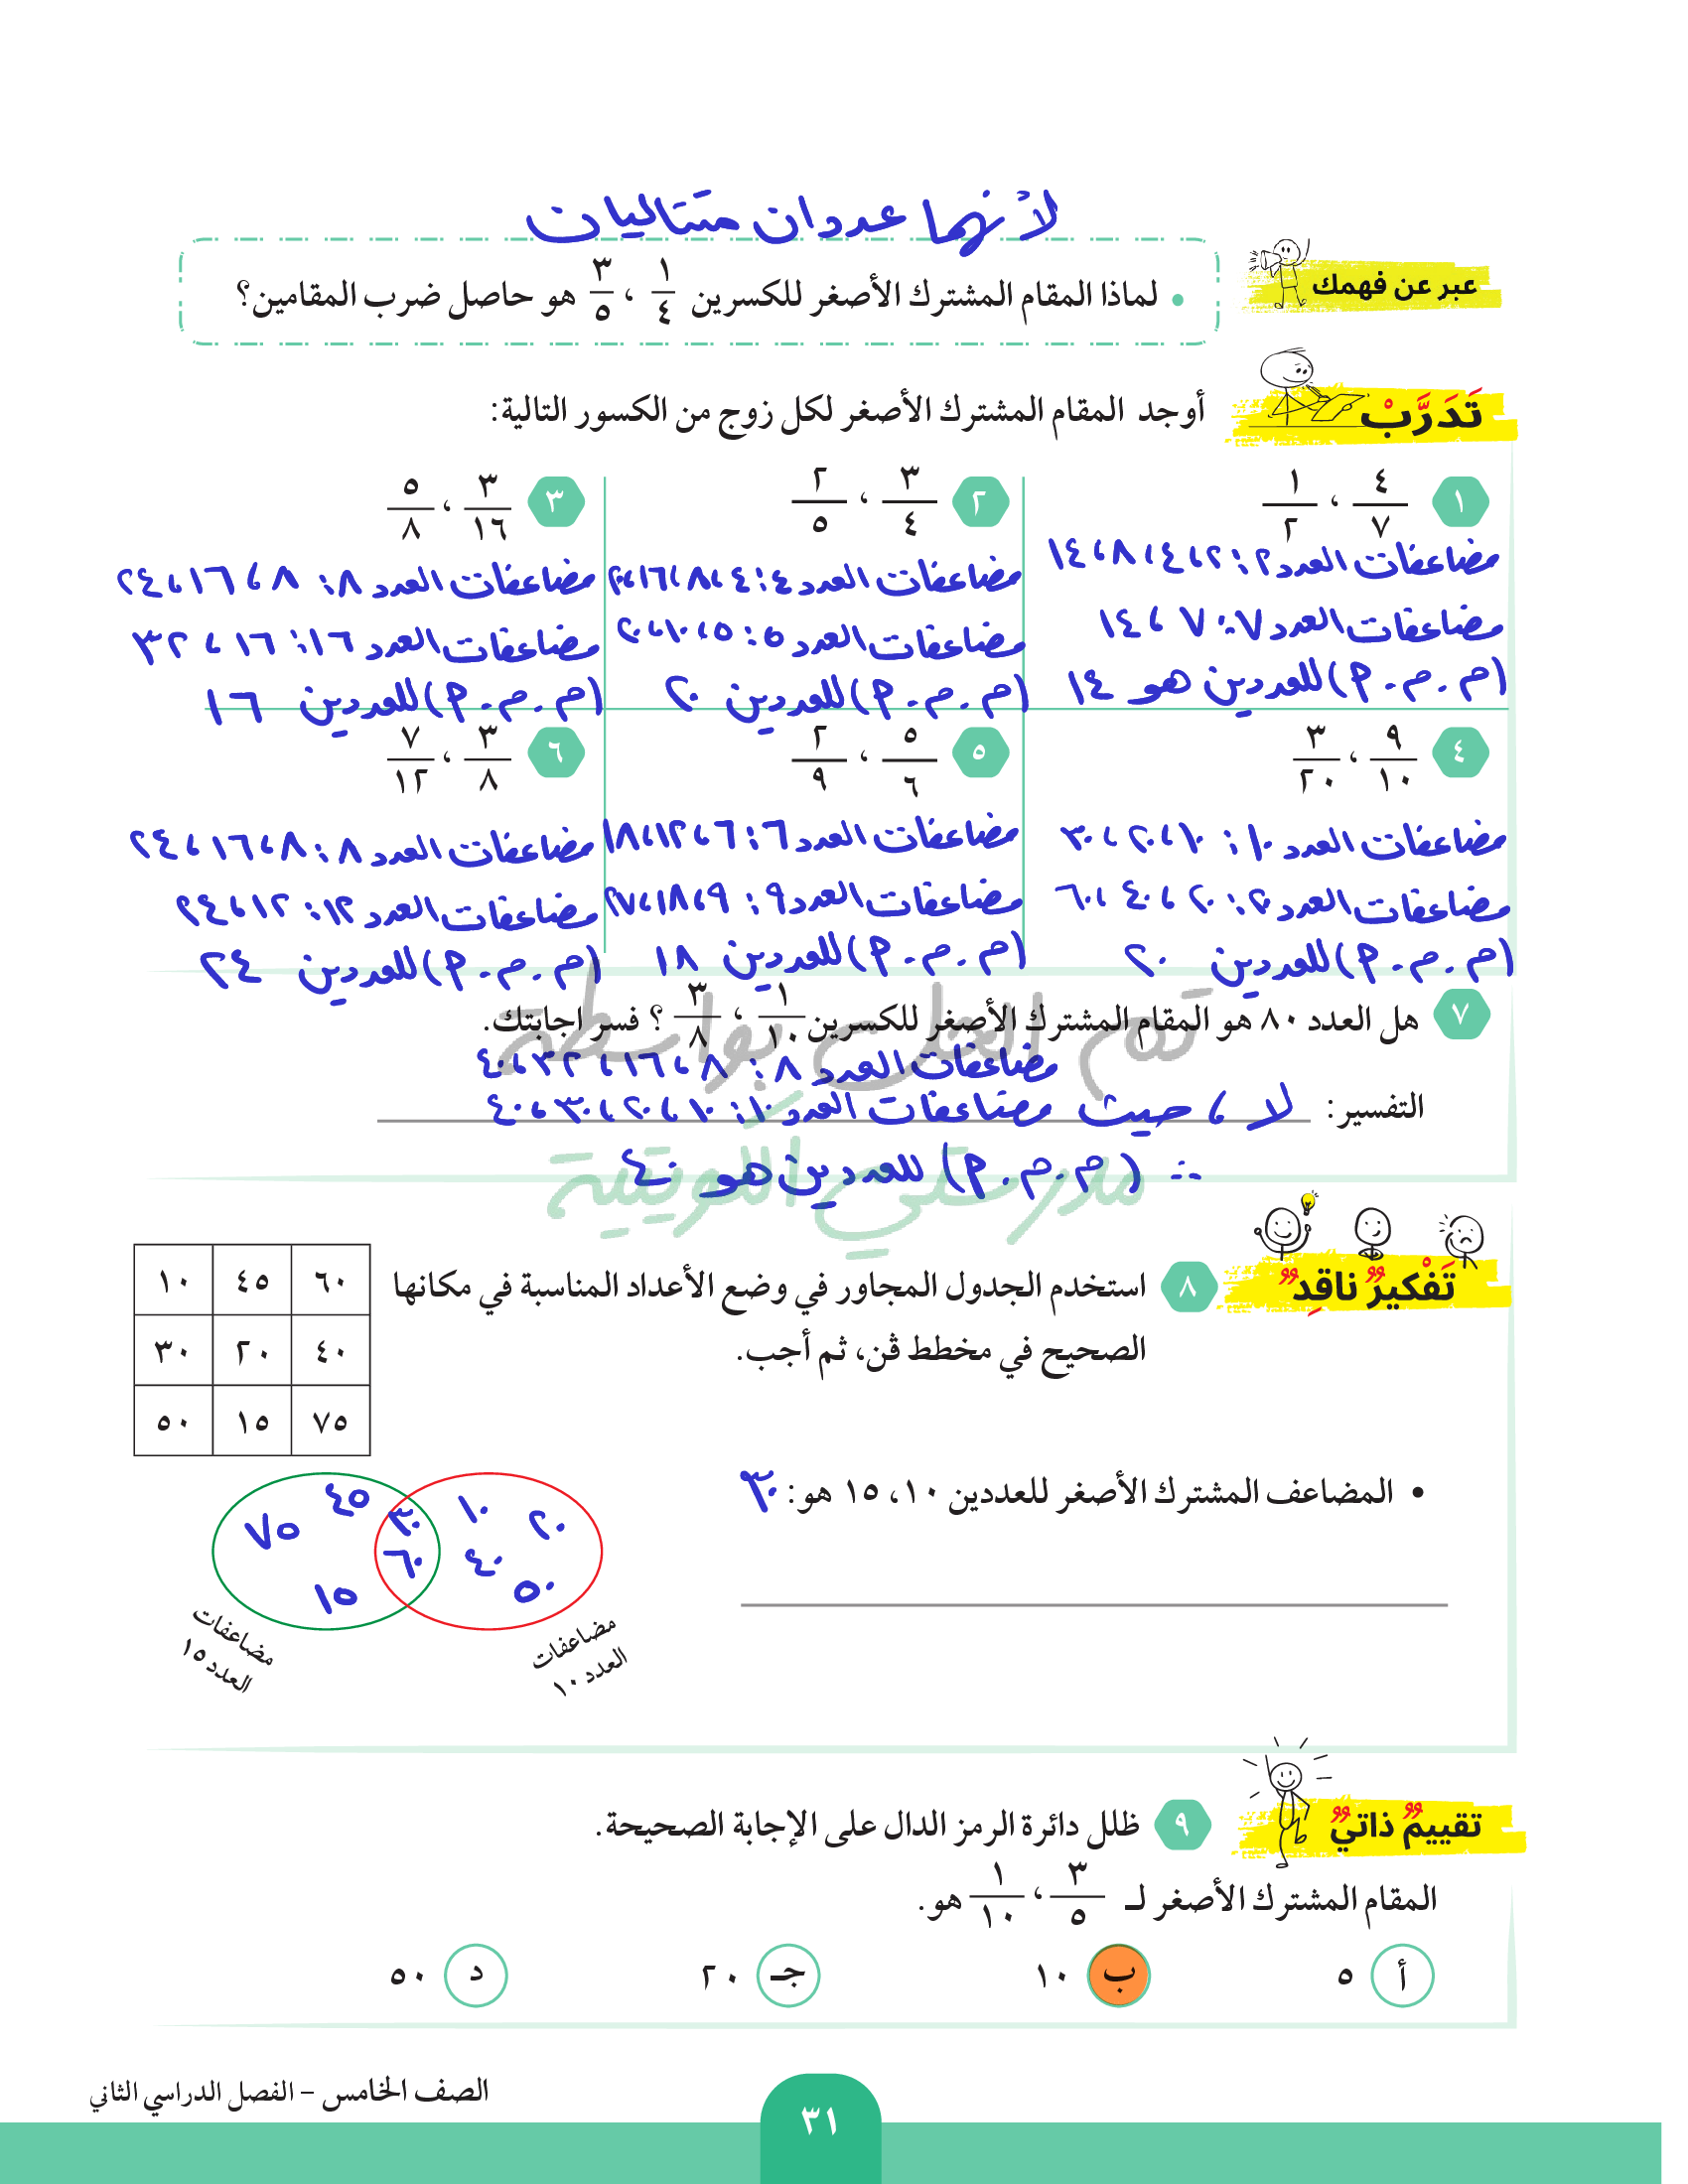 لأنهما عددان متتاليان
عبر عن فهمك
• لماذا المقام المشترك الأصغر للكسرين ١/٤ ، ٣/٥ هو حاصل ضرب المقامين؟
تَدَرَّبْ
أوجد المقام المشترك الأصغر لكل زوج من الكسور التالية:
١ ٤/٧ ، ١/٢
مضاعفات العدد ٢: ٢، ٤، ٨، ١٤
مضاعفات العدد ٧: ٧، ١٤
(م.م.م) للعددين هو ١٤
٢ ٣/٤ ، ٢/٥
مضاعفات العدد ٤: ٤، ٨، ١٦، ٢٠
مضاعفات العدد ٥: ٥، ١٠، ٢٠
(م.م.م) للعددين ٢٠
٣ ٣/١٦ ، ٥/٨
مضاعفات العدد ٨: ٨، ١٦، ٢٤
مضاعفات العدد ١٦: ١٦، ٣٢
(م.م.م) للعددين ١٦
٤ ٩/١٠ ، ٣/٢٠
مضاعفات العدد ١٠: ١٠، ٢٠، ٣٠
مضاعفات العدد ٢٠: ٢٠، ٤٠، ٦٠
(م.م.م) للعددين ٢٠
٥ ٥/٦ ، ٢/٩
مضاعفات العدد ٦: ٦، ١٢، ١٨
مضاعفات العدد ٩: ٩، ١٨، ٢٧
(م.م.م) للعددين ١٨
٦ ٣/٨ ، ٧/١٢
مضاعفات العدد ٨: ٨، ١٦، ٢٤
مضاعفات العدد ١٢: ١٢، ٢٤
(م.م.م) للعددين ٢٤
٧ هل العدد ٨٠ هو المقام المشترك الأصغر للكسرين ١/١٠ ، ٣/٨ ؟ فسر اجابتك.
تم الحل بواسطة
مضاعفات العدد ٨: ٨، ١٦، ٣٢، ٤٠
التفسير: لا، حيث مضاعفات العدد ١٠: ١٠، ٢٠، ٣٠، ٤٠
مدرستي الكويتية
∴ (م.م.م) للعددين هو ٤٠
تَفْكيرٌ ناقِدٌ
٨ استخدم الجدول المجاور في وضع الأعداد المناسبة في مكانها
الصحيح في مخطط ڤن، ثم أجب.
٦٠ ٤٥ ١٠
٤٠ ٢٠ ٣٠
٧٥ ١٥ ٥٠
• المضاعف المشترك الأصغر للعددين ١٠، ١٥ هو: ٣٠
١٠ ٢٠ ٤٠ ٥٠
٣٠ ٦٠
٤٥ ٧٥ ١٥
مضاعفات
العدد ١٠
مضاعفات
العدد ١٥
تقييمٌ ذاتيٌ
٩ ظلل دائرة الرمز الدال على الإجابة الصحيحة.
المقام المشترك الأصغر لـ ٣/٥ ، ١/١٠ هو.
أ ٥ ب ١٠ جـ ٢٠ د ٥٠
الصف الخامس – الفصل الدراسي الثاني
٣١